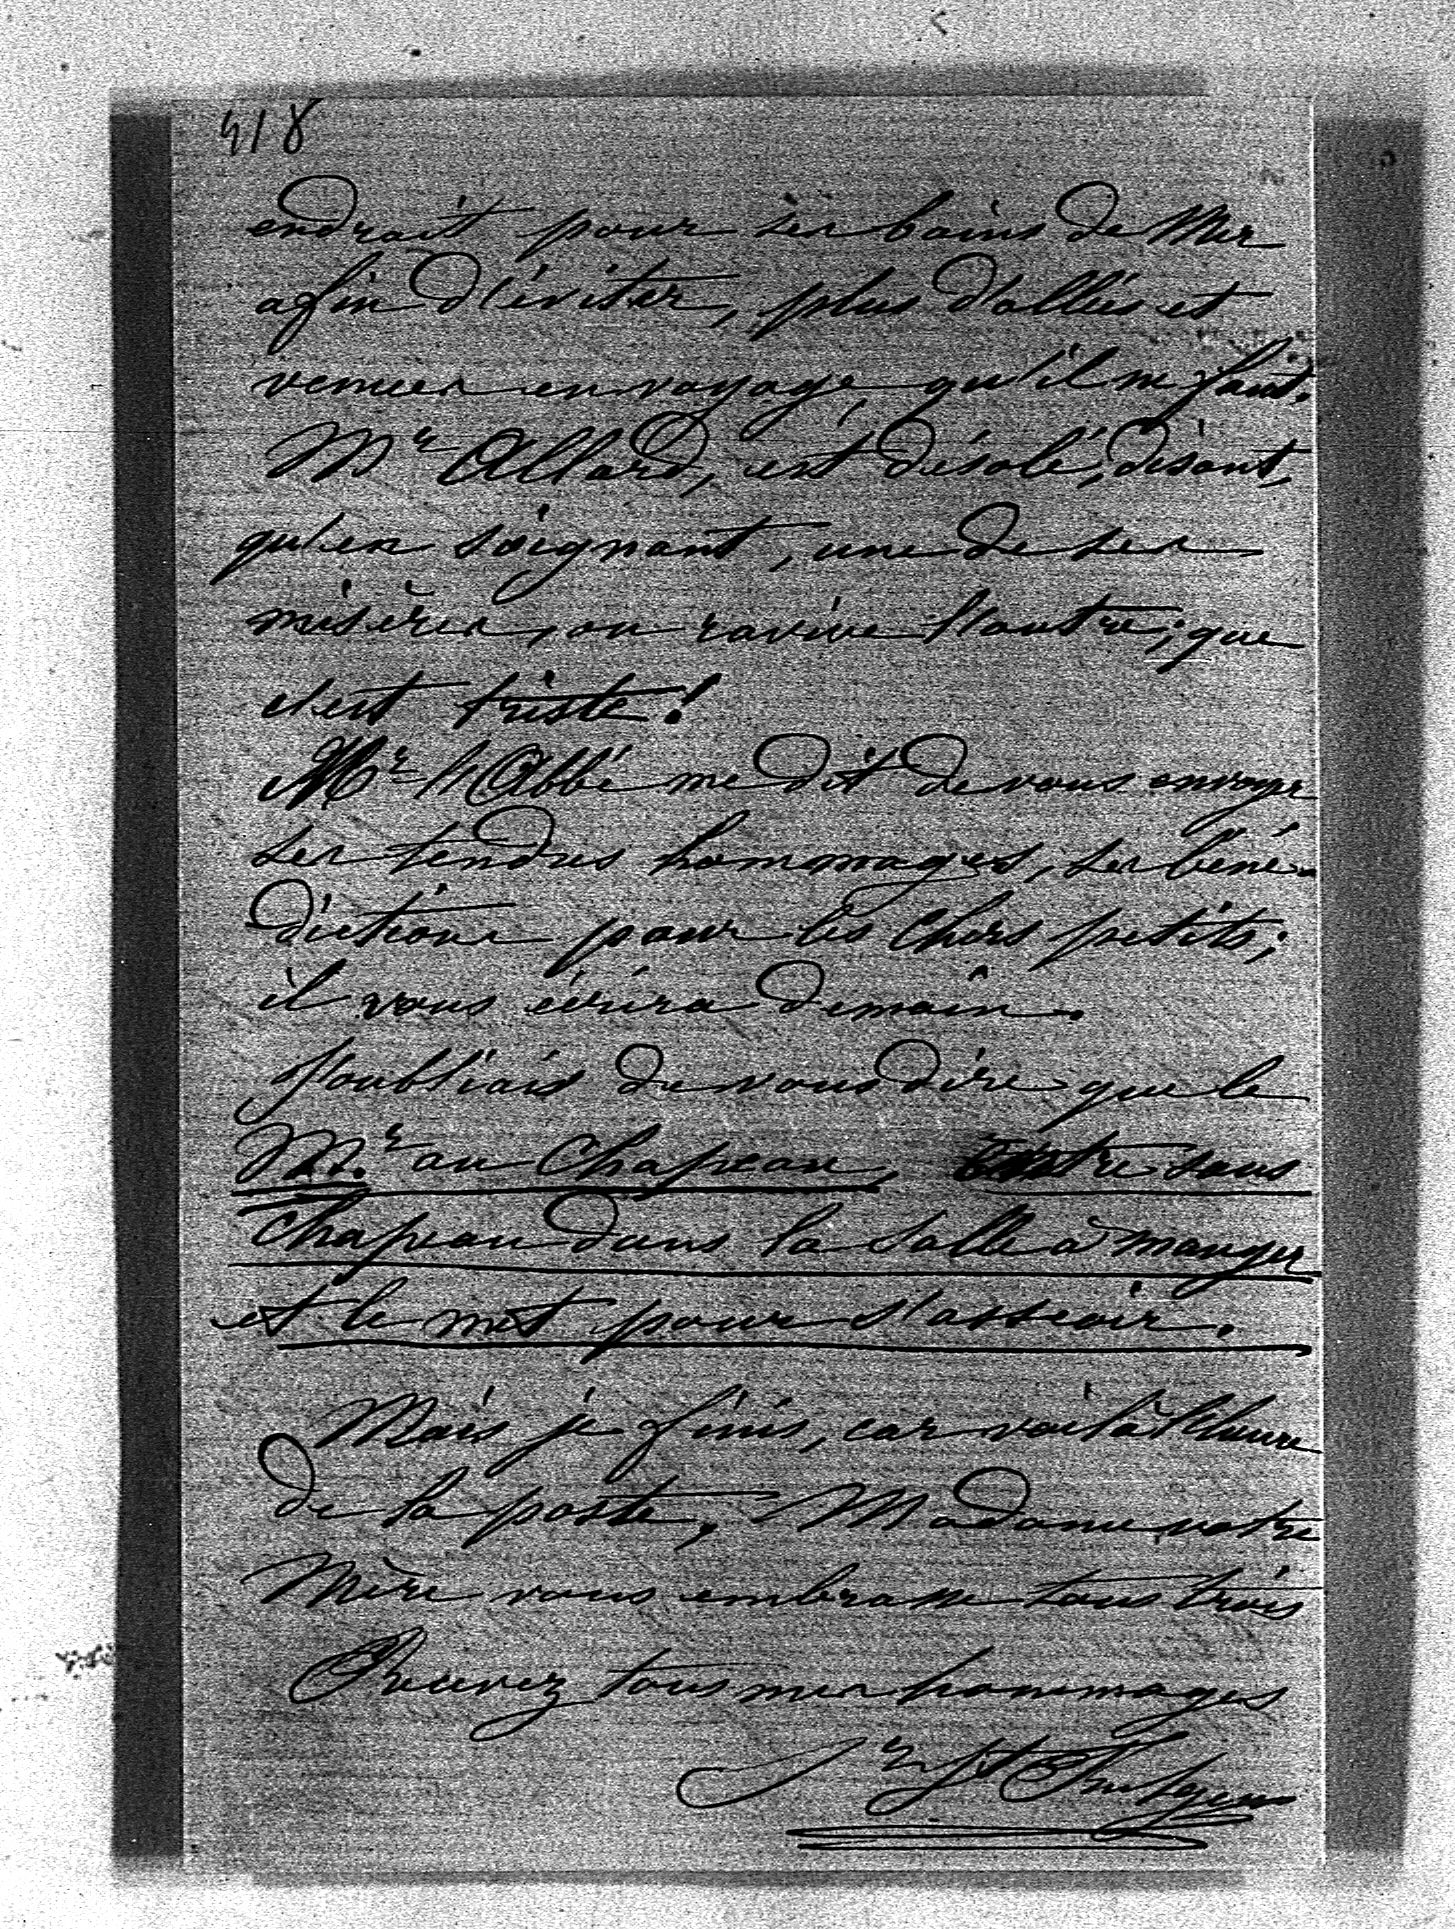 418
endroit pour ses bains de Mer
afin d'éviter, plus d'allées et
venues en voyage qu'il ne faut.
Mr Allard, est désolé, disant,
qu'en soignant, une de ses
misères, on ravive l'autre; que
c'est triste!
Mr l'Abbé me dit de vous envoyer
ses tendres hommages, ses béné-
dictions pour les chers petits;
il vous écrira demain.
J'oubliais de vous dire que le
Mr au Chapeau, entre sans
Chapeau dans la salle à manger
et le met pour s'asseoir.
Mais je finis, car voilà l'heure
de la poste, Madame votre
Mère vous embrasse tous trois
Recevez tous mes hommages
Sr St